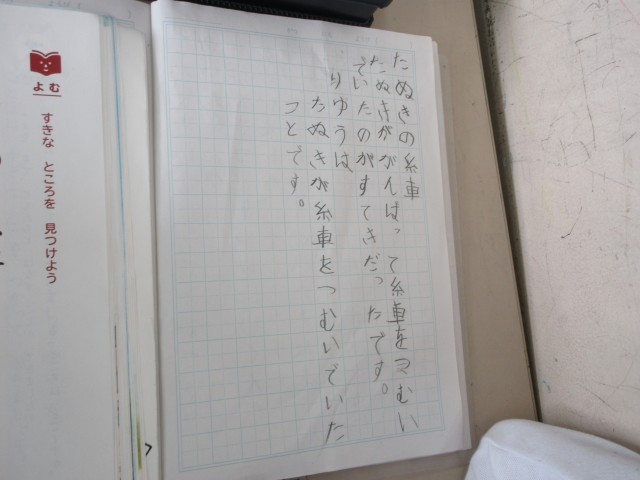 たぬきの糸車
たぬきががんばって糸車をつむい
でいたのがすてきだったです。
りゆうは
たぬきが糸車をつむいでいた
っとです。
よむ
すきな ところを 見つけよう